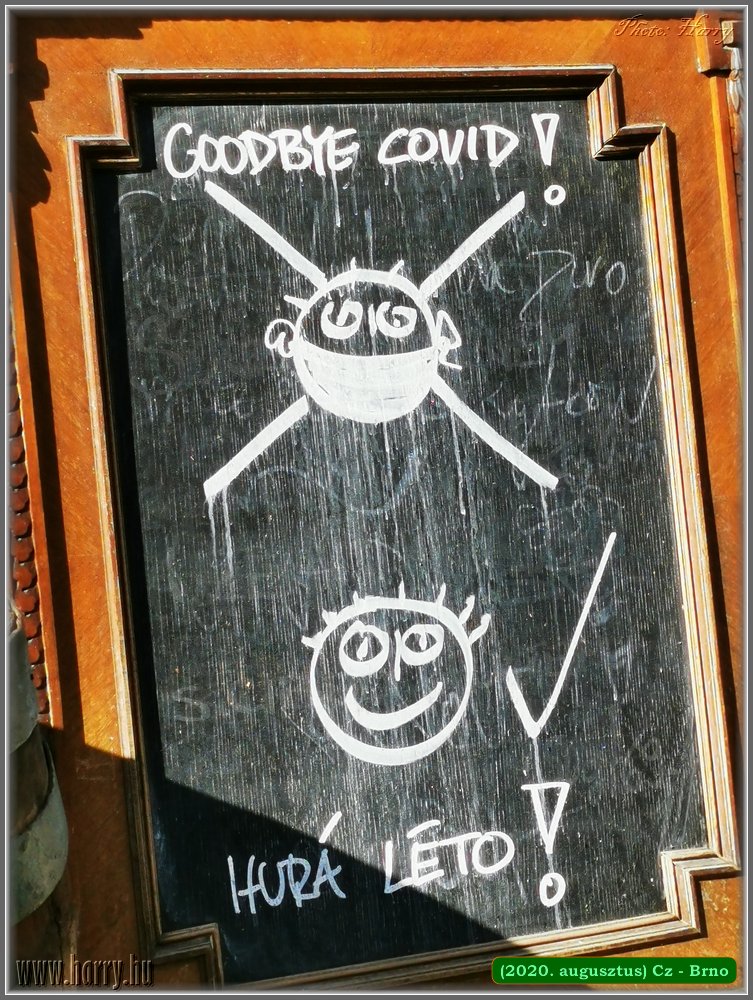 Photo: Harry
GOODBYE COVID!
HURÁ LÉTO!
www.horry.hu
(2020. augusztus) Cz - Brno